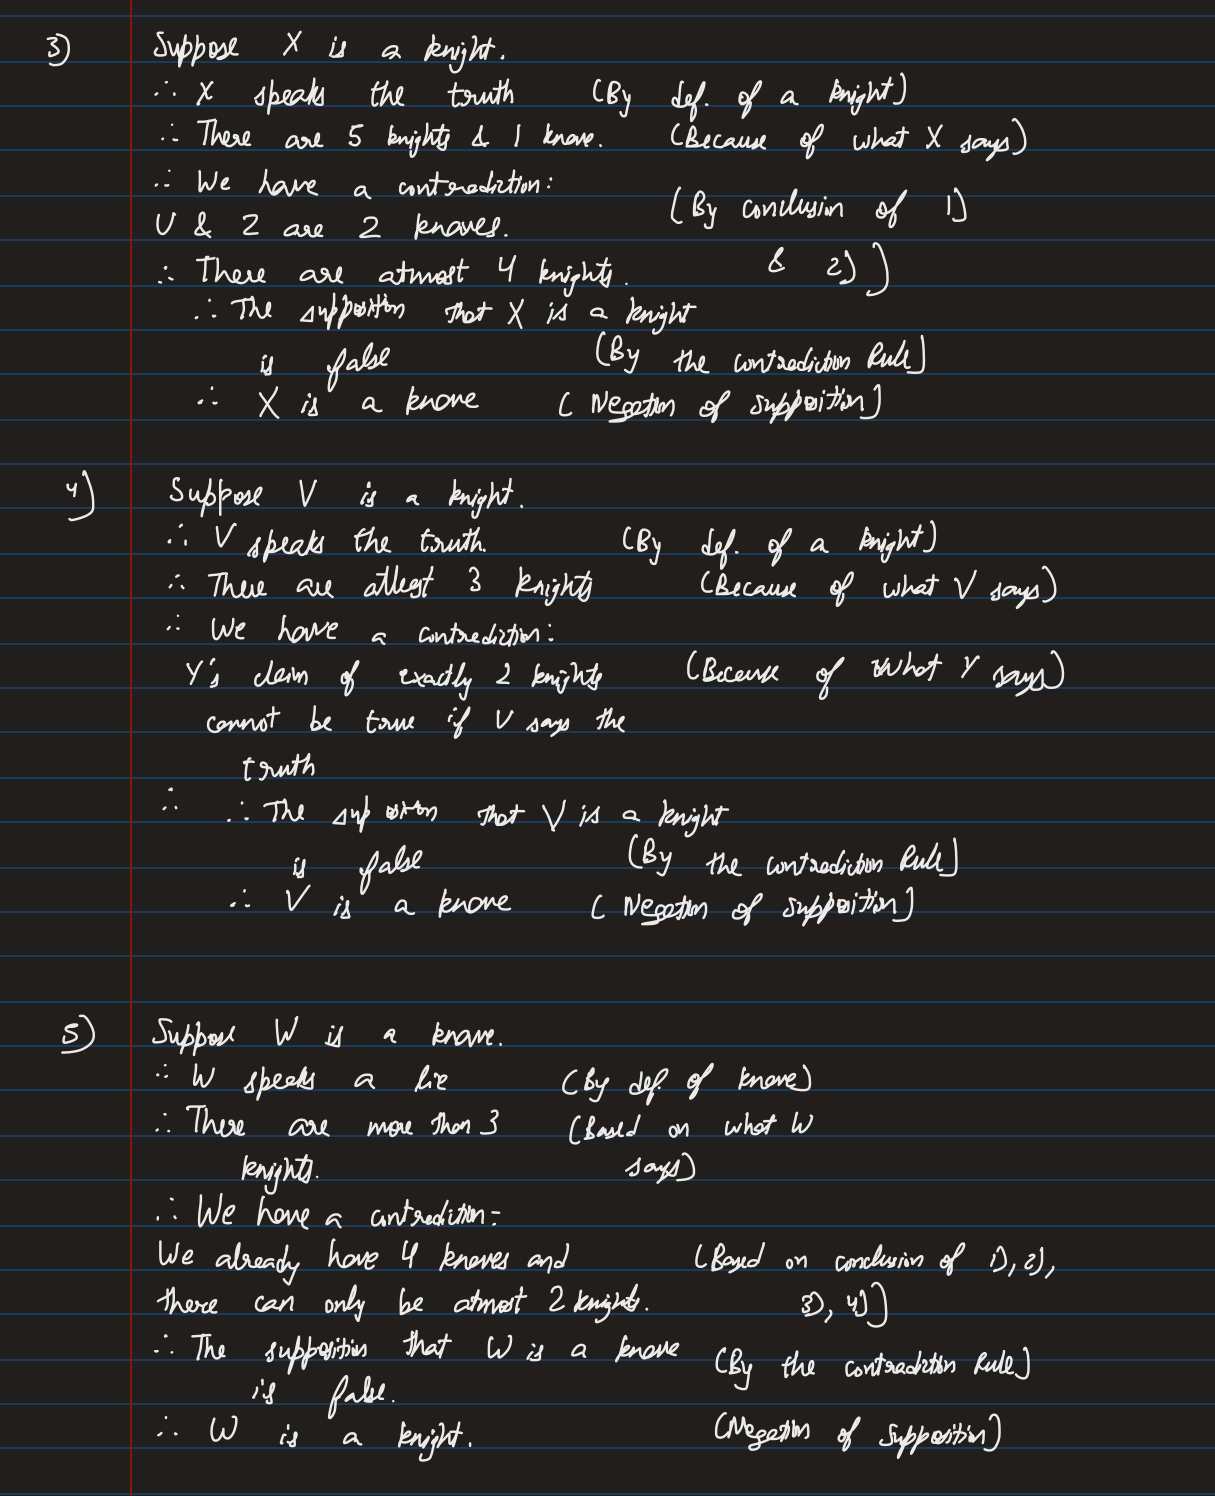 3) Suppose X is a knight.
∴ X speaks the truth (By def. of a knight)
∴ There are 5 knights & 1 knave. (Because of what X says)
∴ We have a contradiction:
U & Z are 2 knaves. (By conclusion of 1)
∴ There are atmost 4 knights. & 2))
∴ The supposition that X is a knight
is false (By the contradiction Rule)
∴ X is a knave (Negation of supposition)
4) Suppose V is a knight.
∴ V speaks the truth. (By def. of a knight)
∴ There are atleast 3 knights (Because of what V says)
∴ We have a contradiction:
Y's claim of exactly 2 knights (Because of what Y says)
cannot be true if V says the
truth
∴ ∴ The supposition that V is a knight
is false (By the contradiction Rule)
∴ V is a knave (Negation of supposition)
5) Suppose W is a knave.
∴ W speaks a lie (By def. of knave)
∴ There are more than 3 (Based on what W
knights. says)
∴ We have a contradiction:
We already have 4 knaves and (Based on conclusion of 1), 2),
there can only be atmost 2 knights. 3), 4))
∴ The supposition that W is a knave (By the contradiction Rule)
is false.
∴ W is a knight. (Negation of supposition)